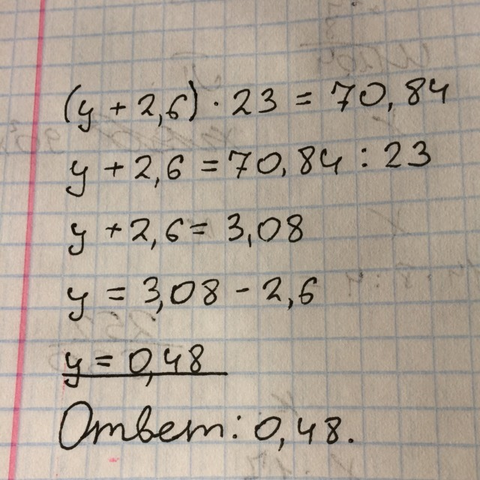 (y + 2,6) · 23 = 70,84
y + 2,6 = 70,84 : 23
y + 2,6 = 3,08
y = 3,08 - 2,6
y = 0,48
Ответ: 0,48.